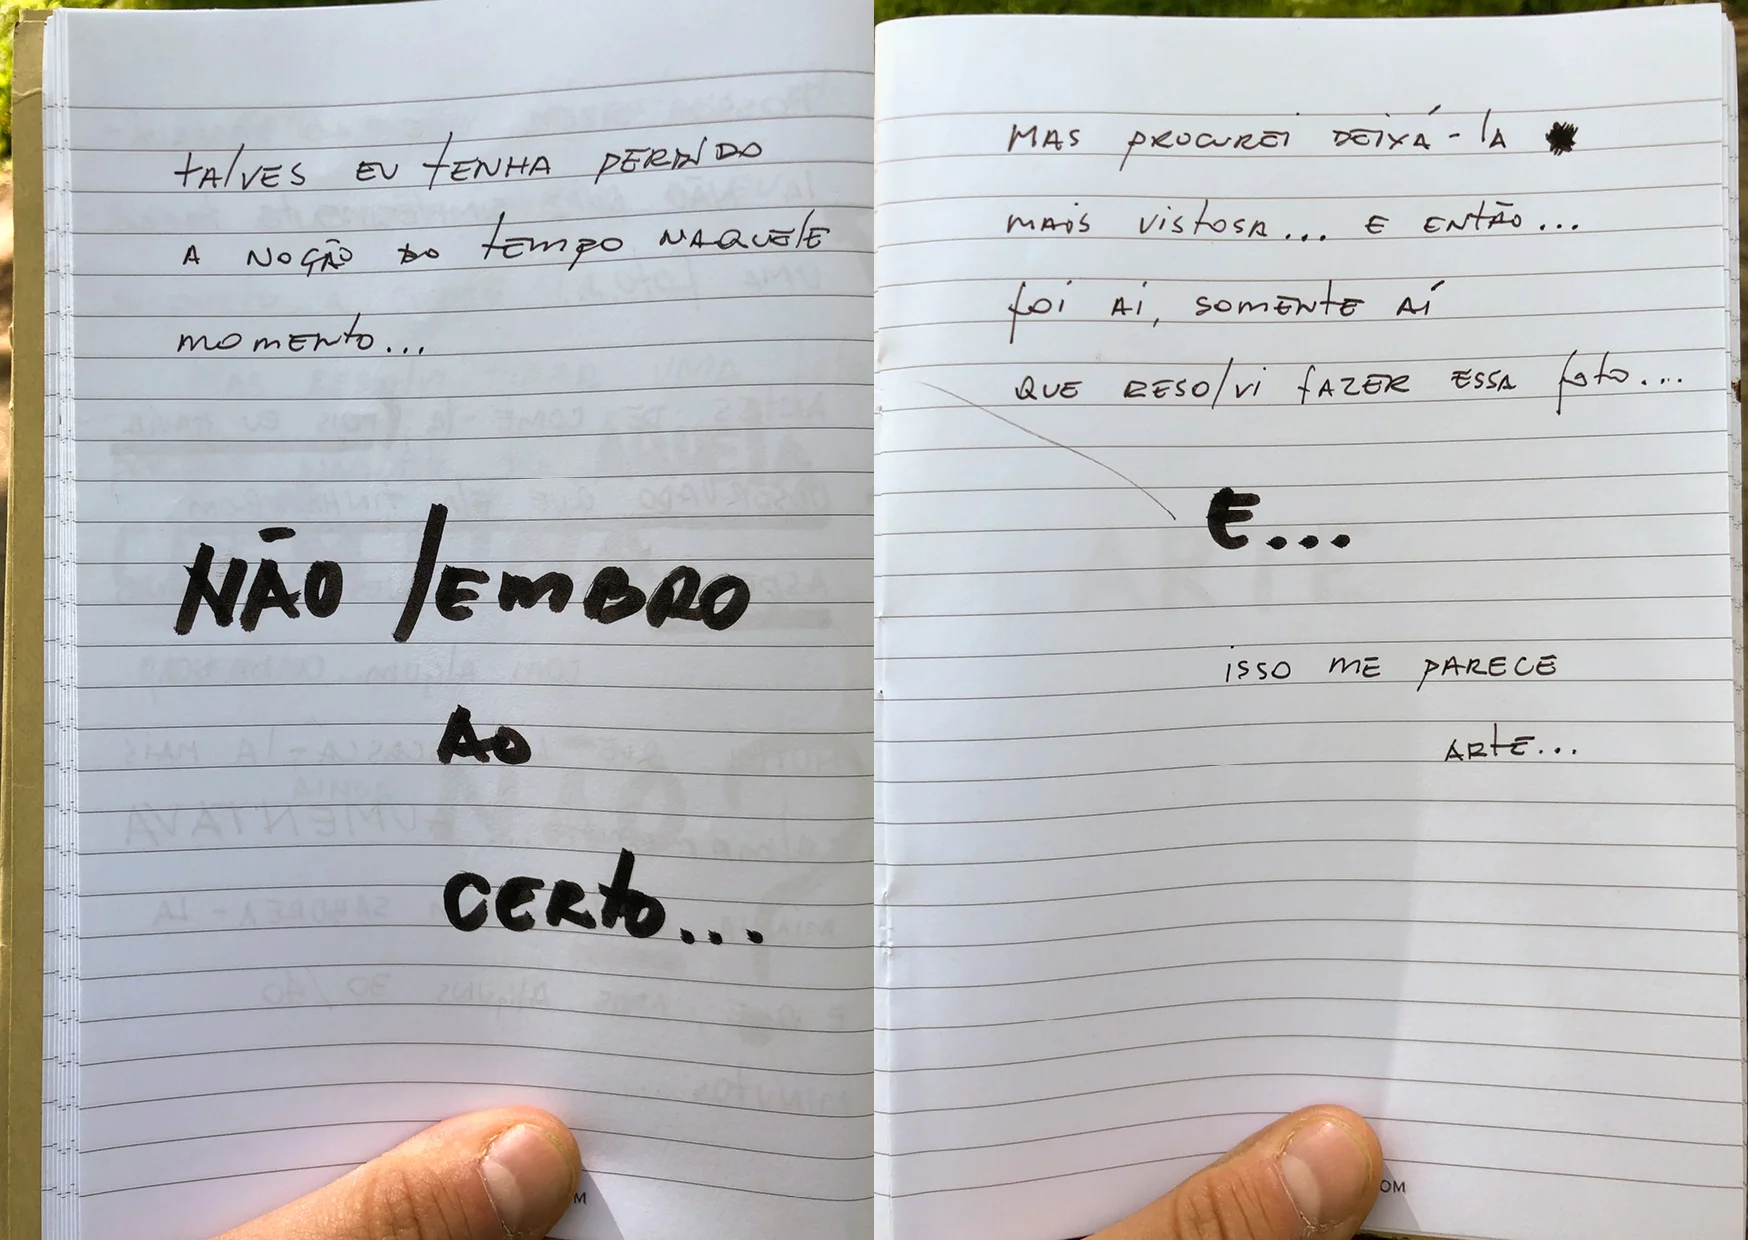 TALVES EU TENHA PERDIDO
A NOÇÃO DO TEMPO NAQUELE
MOMENTO...
NÃO LEMBRO
AO
CERTO...
MAS PROCUREI DEIXÁ-LA
MAIS VISTOSA... E ENTÃO...
FOI AI, SOMENTE AÍ
QUE RESOLVI FAZER ESSA FOTO....
E...
ISSO ME PARECE
ARTE...